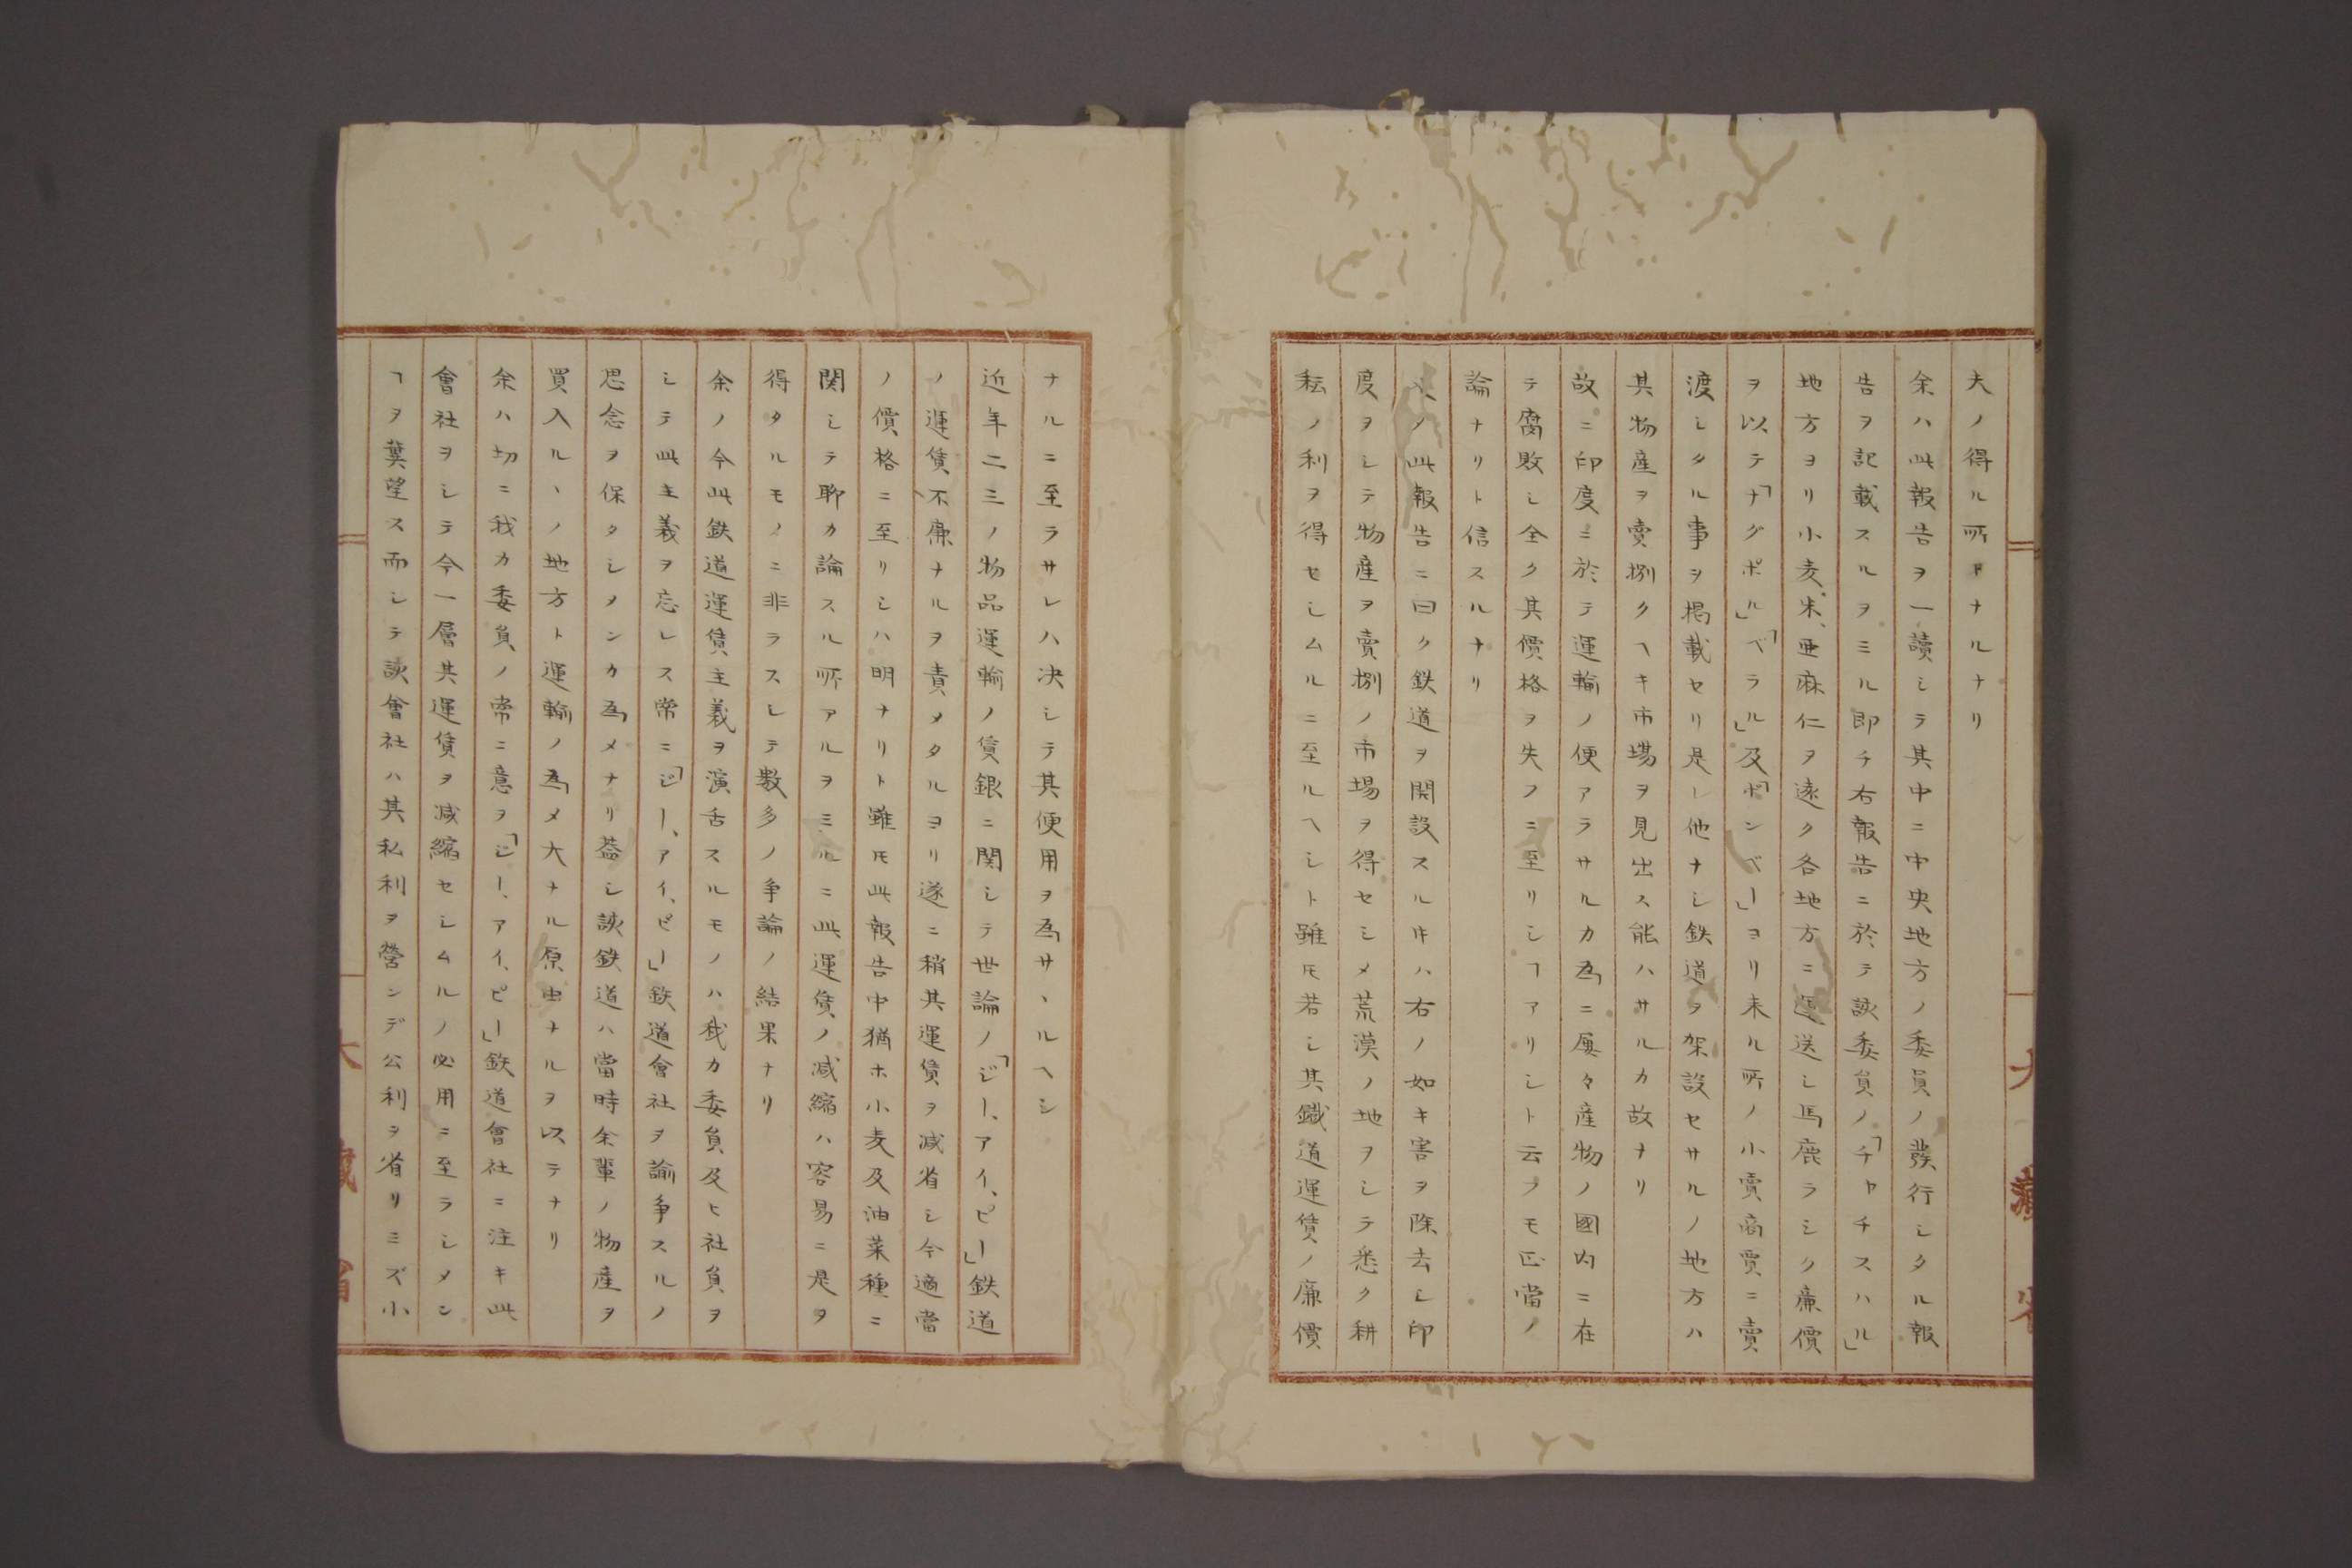 夫ノ得ル所ナルナリ
余ハ此報告ヲ一讀シテ其中ニ中央地方ノ委員ノ發行シタル報
告ヲ記載スルヲミル即チ右報告ニ於テ該委員ノ「チヤチスハル」
地方ヨリ小麦、米、亜麻仁ヲ遠ク各地方ニ運送シ馬鹿ラシク廉價
ヲ以テ「ナグポル」「ベラル」及「ボンベー」ヨリ来ル所ノ小賣商賈ニ賣
渡シタル事ヲ掲載セリ是レ他ナシ鉄道ヲ架設セサルノ地方ハ
其物産ヲ賣捌クヘキ市場ヲ見出ス能ハサルカ故ナリ
故ニ印度ニ於テ運輸ノ便アラサルカ為ニ屡々産物ノ國内ニ在
テ腐敗シ全ク其價格ヲ失フニ至リシヿアリシト云フモ正當ノ
論ナリト信スルナリ
又ノ此報告ニ曰ク鉄道ヲ開設スル片ハ右ノ如キ害ヲ除去シ印
度ヲシテ物産ヲ賣捌ノ市場ヲ得セシメ荒漠ノ地ヲシテ悉ク耕
耘ノ利ヲ得セシムルニ至ルヘシト雖モ若シ其鐵道運賃ノ廉價
ナルニ至ラサレハ决シテ其便用ヲ為サヽルヘシ
近年二三ノ物品運輸ノ賃銀ニ関シテ世論ノ「ジー、アイ、ピー」鉄道
ノ運賃不廉ナルヲ責メタルヨリ遂ニ稍其運賃ヲ减省シ今適當
ノ價格ニ至リシハ明ナリト雖モ此報告中猶ホ小麦及油菜種ニ
関シテ聊カ論スル所アルヲミルニ此運賃ノ减縮ハ容易ニ是ヲ
得タルモノニ非ラスシテ數多ノ争論ノ結果ナリ
余ノ今此鉄道運賃主義ヲ演舌スルモノハ我カ委員及ヒ社員ヲ
シテ此主義ヲ忘レス常ニ「ジー、アイ、ピー」鉄道會社ヲ論争スルノ
思念ヲ保タシメンカ為メナリ葢シ該鉄道ハ當時余輩ノ物産ヲ
買入ルヽノ地方ト運輸ノ為メ大ナル原由ナルヲ以テナリ
余ハ切ニ我カ委員ノ常ニ意ヲ「ジー、アイ、ピー」鉄道會社ニ注キ此
會社ヲシテ今一層其運賃ヲ减縮セシムルノ必用ニ至ラシメン
ヿヲ冀望ス而シテ該會社ハ其私利ヲ營ンデ公利ヲ省リミズ小
大藏省
大藏省